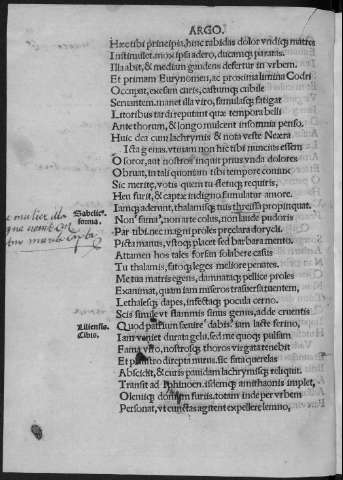 ARGO.
Hæc tibi principia, hinc rabidas dolor vndiq; matres
Instimulet. mox ipsa adero, ducamq; paratas.
Illa abit, & mediam gaudens defertur in vrbem.
Et primam Eurynomen, ac proxima limina Codri
Occupat, exesam curis, castumq; cubile
Seruantem. manet illa viro, famulasq; fatigat
Litoribus tardi reputant quæ tempora belli
Ante thorum, & longo mulcent insomnia penso.
Huic dea cum lachrymis & nota veste Neæra
Icta genas. vtinam non hic tibi nuncius essem
O soror, aut nostros inquit prius vnda dolores
Obruat, in tali quoniam tibi tempore coniux
Sic merite, votis quem tu fletuq; requiris,
Heu furit, & captæ indigno famulatur amore.
Iamq; aderunt, thalamisq; tuis threissa propinquat.
Non forma, non arte colus, non laude pudoris
Par tibi. nec magni proles præclara dorycli.
Picta manus, vstoq; placet sed barbara mento.
Attamen hos tales forsan solabere casus
Tu thalamis, fatoq; leges meliore penates.
Me tua matris egens, damnataq; pellice proles
Exanimat, quam iam miseros trasuersa tuentem,
Lethalesq; dapes, infectaq; pocula cerno.
Scis simile vt flammis simus genus, adde cruentis
Quod patrium sæuire dabis. iam lacte ferino,
Iam veniet durata gelu. sed me quoq; pulsam
Fama viro, nostrosq; thoros virgata tenebit
Et plaustro direpta nurus. sic fata querelas
Abscidit, & curis pauidam lachrymisq; reliquit.
Transit ad Iphinoen. isdemq; amithaonis implet,
Oleniiq; domum furiis. totam inde per vrbem
Personat, vt cunctas agitent expellere lemno,
Sabellic.
forma.
Tibi